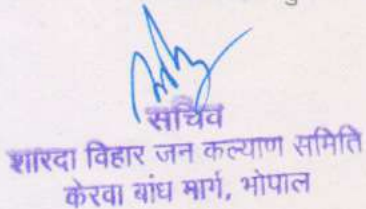 सचिव
शारदा विहार जन कल्याण समिति
केरवा बांध मार्ग, भोपाल